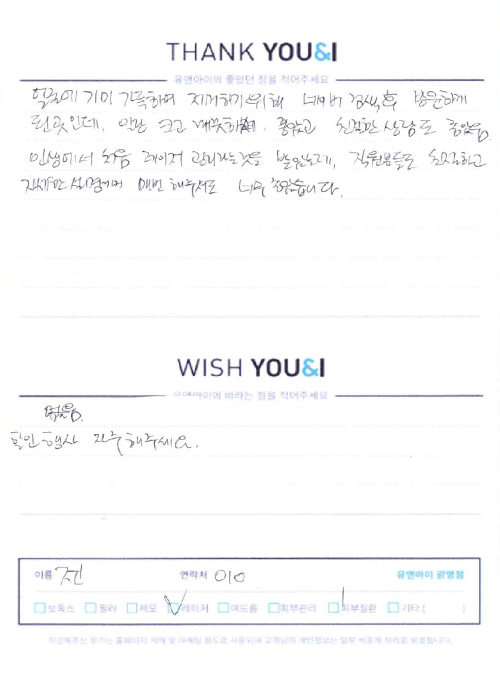 THANK YOU&I
유앤아이의 좋았던 점을 적어주세요
얼굴에 기미 가득하여 제거하기 위해 네이버 검색 후 방문하게
된 곳인데, 일단 크고 깨끗해서 좋았고 친절한 상담도 좋았음.
인생에서 처음 레이저 관리라는 것을 받았는데, 직원분들도 친절하고
자세한 설명까지 매번 해주셔도 너무 좋았습니다.
WISH YOU&I
유앤아이에 바라는 점을 적어주세요
없음.
할인행사 자주 해주세요.
이름 연락처 010 유앤아이 광명점
보톡스 필러 제모 레이저 여드름 피부관리 피부질환 기타 ( )
작성해주신 후기는 홈페이지 게재 및 마케팅 용도로 사용되며 고객님의 개인정보는 일부 비공개 처리로 보호됩니다.